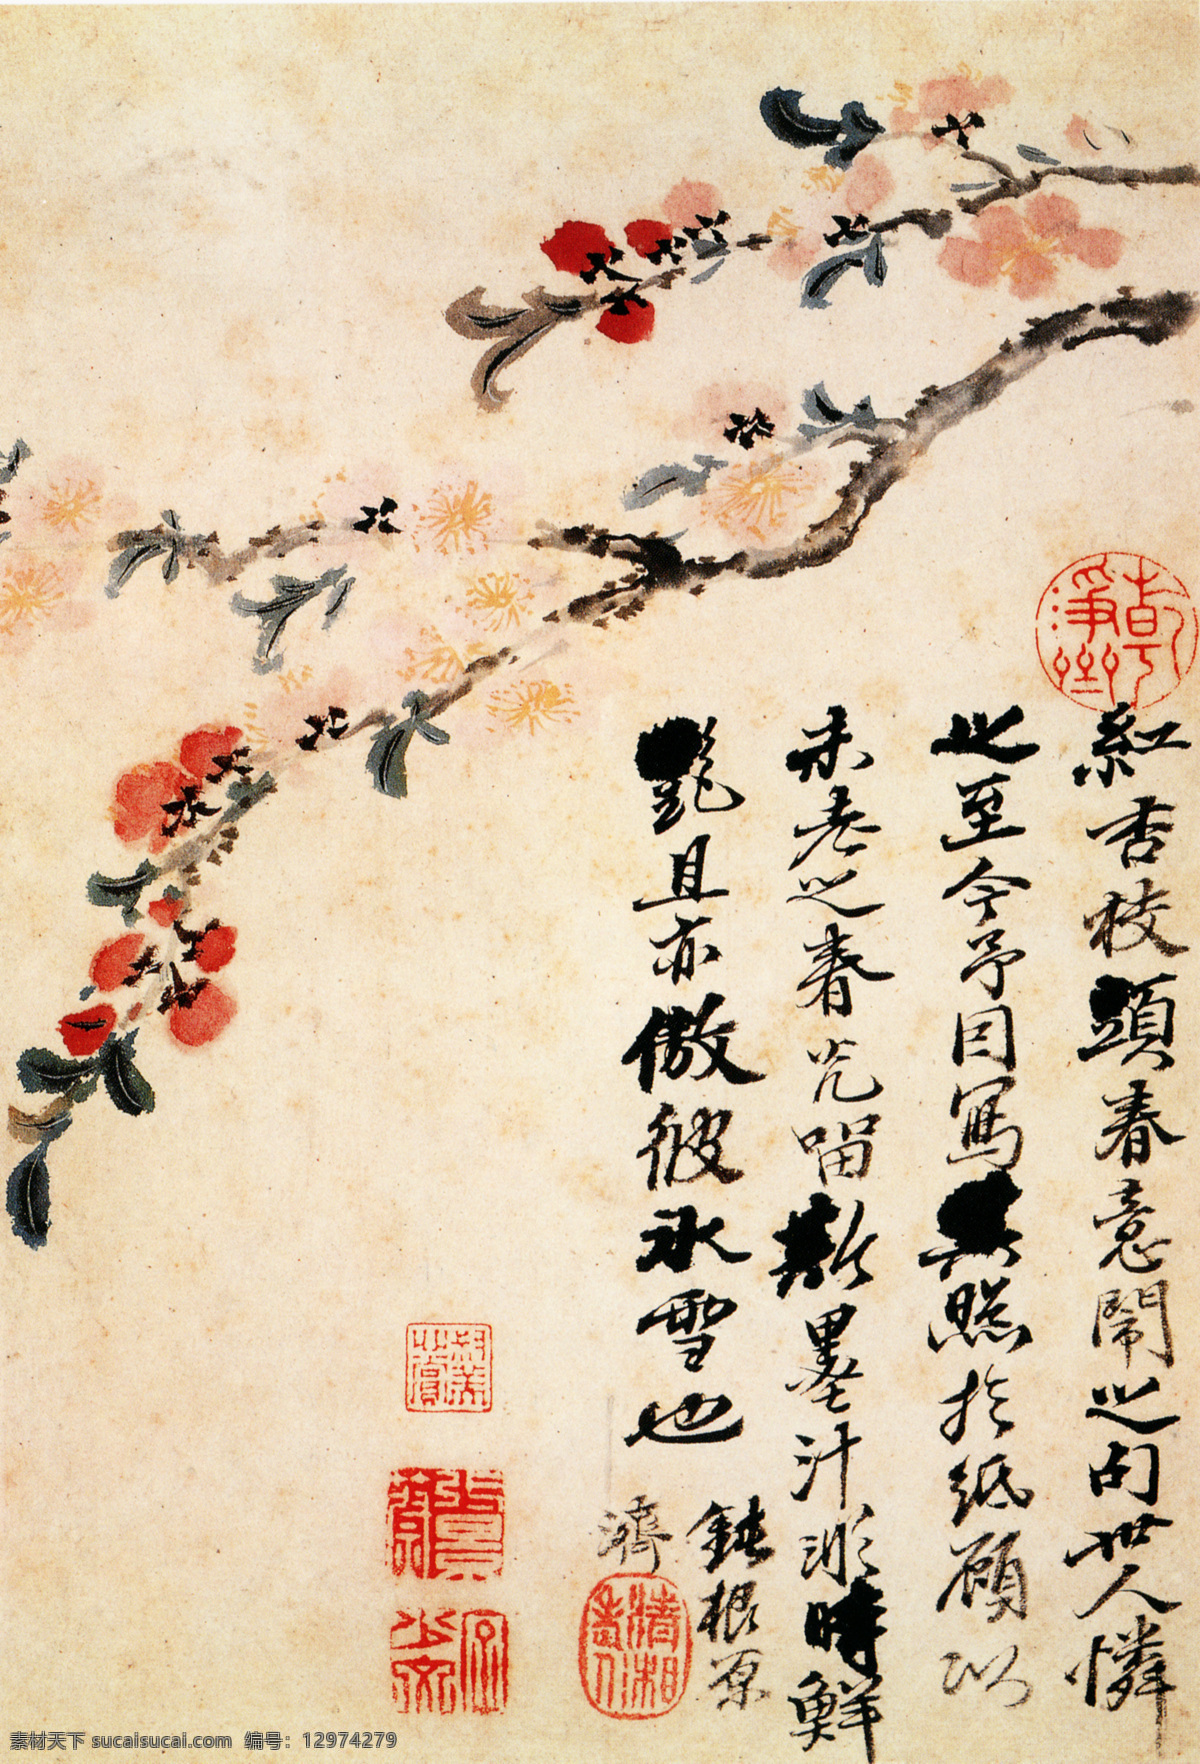 紅杏枝頭春意鬧之句世人憐
之至今予因寫其照於紙顧以
未老之春光留斯墨汁時鮮
艷且亦傲彼冰雪也
鈍根原
濟
清湘老人
素材天下 sucaisucai.com 编号：12974279